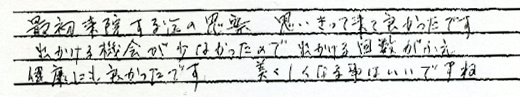 最初来院する迄の思案　思いきって来て良かったです
出かける機会が少なかったので出かける回数がふえ
健康にも良かったです　美くしくなる事はいいですね